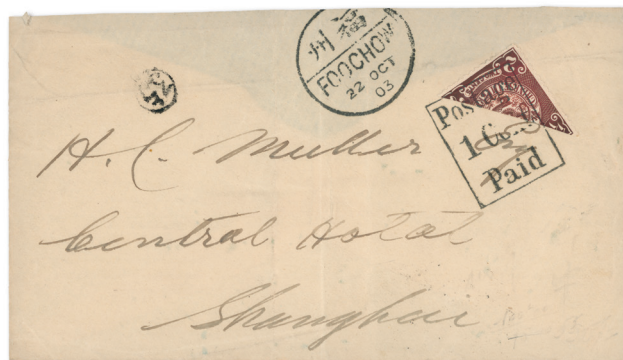 州福
FOOCHOW
22 OCT
03
2
Postage
1 Cent
Paid
H. C. Muller Esq
Central Hotel
Shanghai